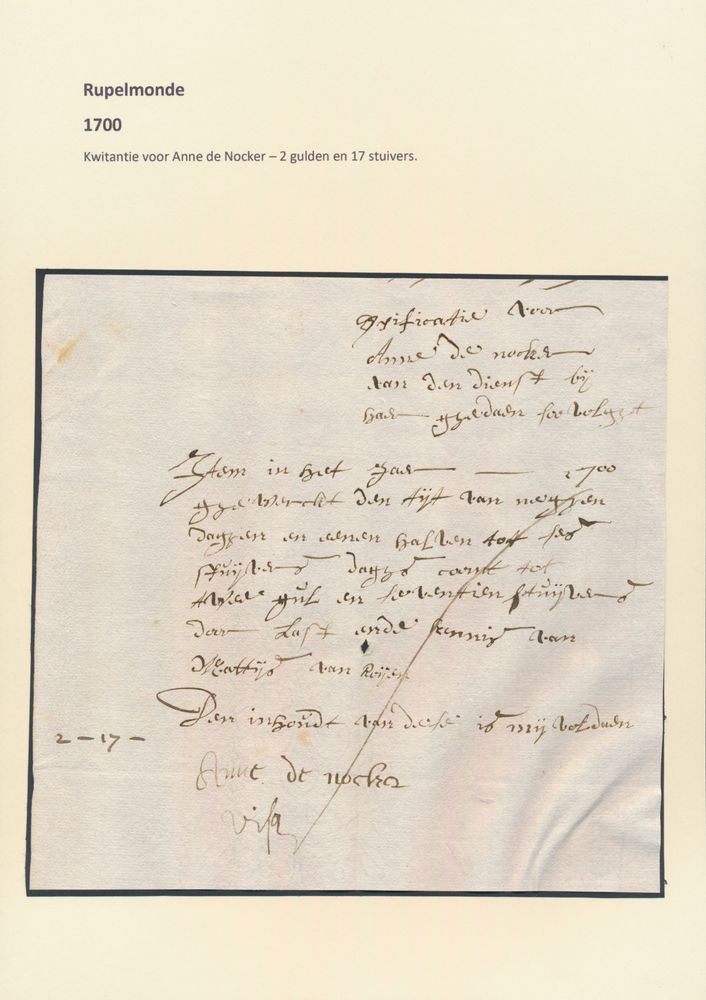 Rupelmonde
1700
Kwitantie voor Anne de Nocker – 2 gulden en 17 stuivers.
voor
Anne de nocker
van den dienst bij
haer ghedaen soo volght
Item in het Jaer 1700
ghewerckt den tijt van neghen
daghen en eenen halven tot ses
stuijvers daghs comt tot
twee gul en seventien stuijvers
door last ende kennis van
Mattijs van Roijen
Den inhoudt van dese is mij voldaen
2 – 17 –
Anne de nocker